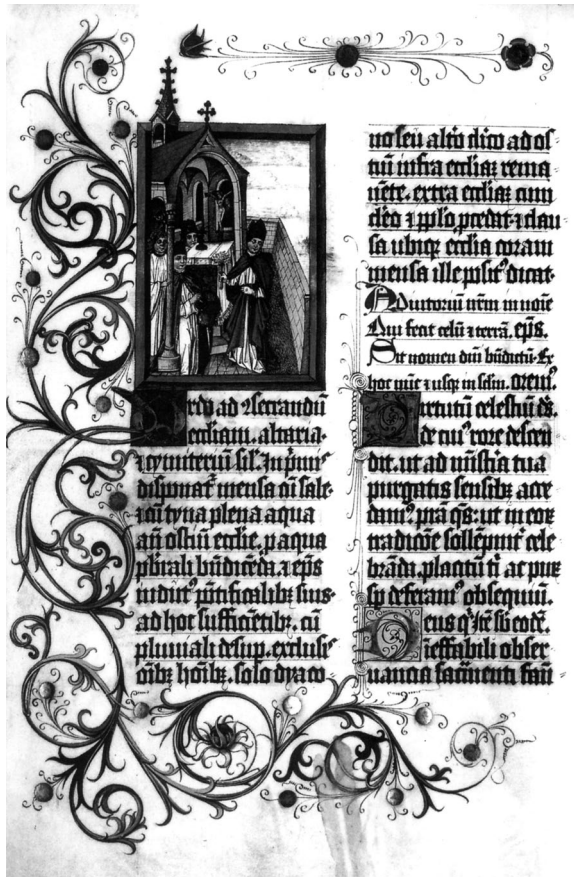 Ordo ad ꝯsecrandū
eccliam. altaria.
⁊ cymiteriū sil'. In p̄mis
disponat̄ mensa cū sale.
⁊ cū tyna plena aqua
an̄ ostiū ecclie, p aqua
p̄brāli bn̄dicēda. ⁊ ep̄s
indut⁹ pōtificalibꝫ suis.
ad hoc sufficiētibꝫ. cū
pluuiali desup. exclusis
oībꝫ hoībꝫ. solo dyaco
no seu altō dicō ad os
tiū infra eccliaꝫ rema
nēte. extra eccliaꝫ cum
clēo ⁊ pplō ꝓcedat. ⁊ clau
sa ubiqꝫ ecclia coram
mensa ille psist⁹ dicat.
Adiutoriū nr̄m in noīe
Qui fecit celū ⁊ terrā. ep̄s.
Sit nomen dn̄i bn̄dictū. Ex
hoc nūc ⁊ usqꝫ in sclm. orem⁹.
Uirtutū celestiū ds̄.
de cui⁹ rore descen
dit. ut ad mīstia tua
purgatis sensibꝫ acce
dam⁹. prā qs̄: ut in eoꝝ
tradicōe sollēpnit' cele
brāda. placitū ti' ac puꝝ
sp deferam⁹ obsequiū.
Deus q' ītē sb' eodē.
ineffabili obser
uancia sac̄menti fam̄